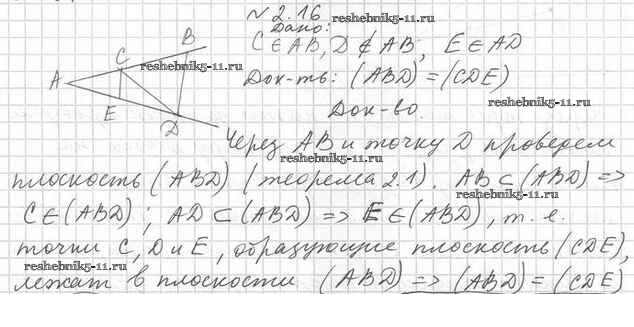 № 2.16
reshebnik5-11.ru
Дано:
C ∈ AB, D ∉ AB, E ∈ AD
Док-ть: (ABD) = (CDE)
reshebnik5-11.ru
Док-во.
A
C
B
reshebnik5-11.ru
E
D
Через AB и точку D проведем
reshebnik5-11.ru
плоскость (ABD) (теорема 2.1). AB ⊂ (ABD) =>
C ∈ (ABD); AD ⊂ (ABD) => E ∈ (ABD), т. е.
reshebnik5-11.ru
точки C, D и E, образующие плоскость (CDE),
reshebnik5-11.ru
лежат в плоскости (ABD) => (ABD) = (CDE)